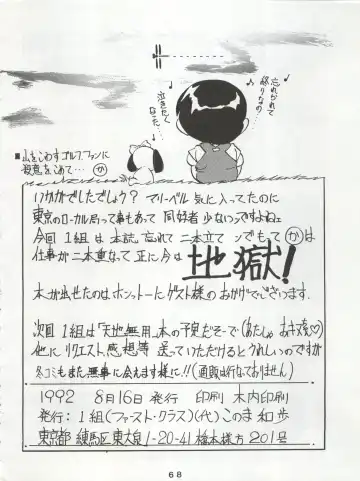 忘れられて
終りなの
泣きたく
なった
■山をこわすゴルフファンに
殺意をこめて…か
いかがでしたでしょう? マリーベル 気に入ってたのに
東京のローカル局って事もあって 同好者 少ないンですよねェ
今回1組は 本誌 忘れて 二本立て ンでもって か は
仕事が二本重なって 正に今は 地獄!
本が出せたのはホンットーに ゲスト様の おかげでございます。
次回 1組は「天地無用」本の予定だそーで (あたしゃ おキヌ党♡)
他に リクエスト 感想等 送っていただけると うれしいのですが
冬コミもまた 無事に 会えます様に!! (通販は行なっておりません)
1992 8月16日 発行 印刷 木内印刷
発行:1組(ファースト・クラス) (代) このま 和歩
東京都 練馬区 東大泉 1-20-41 橋本様方 201号
68